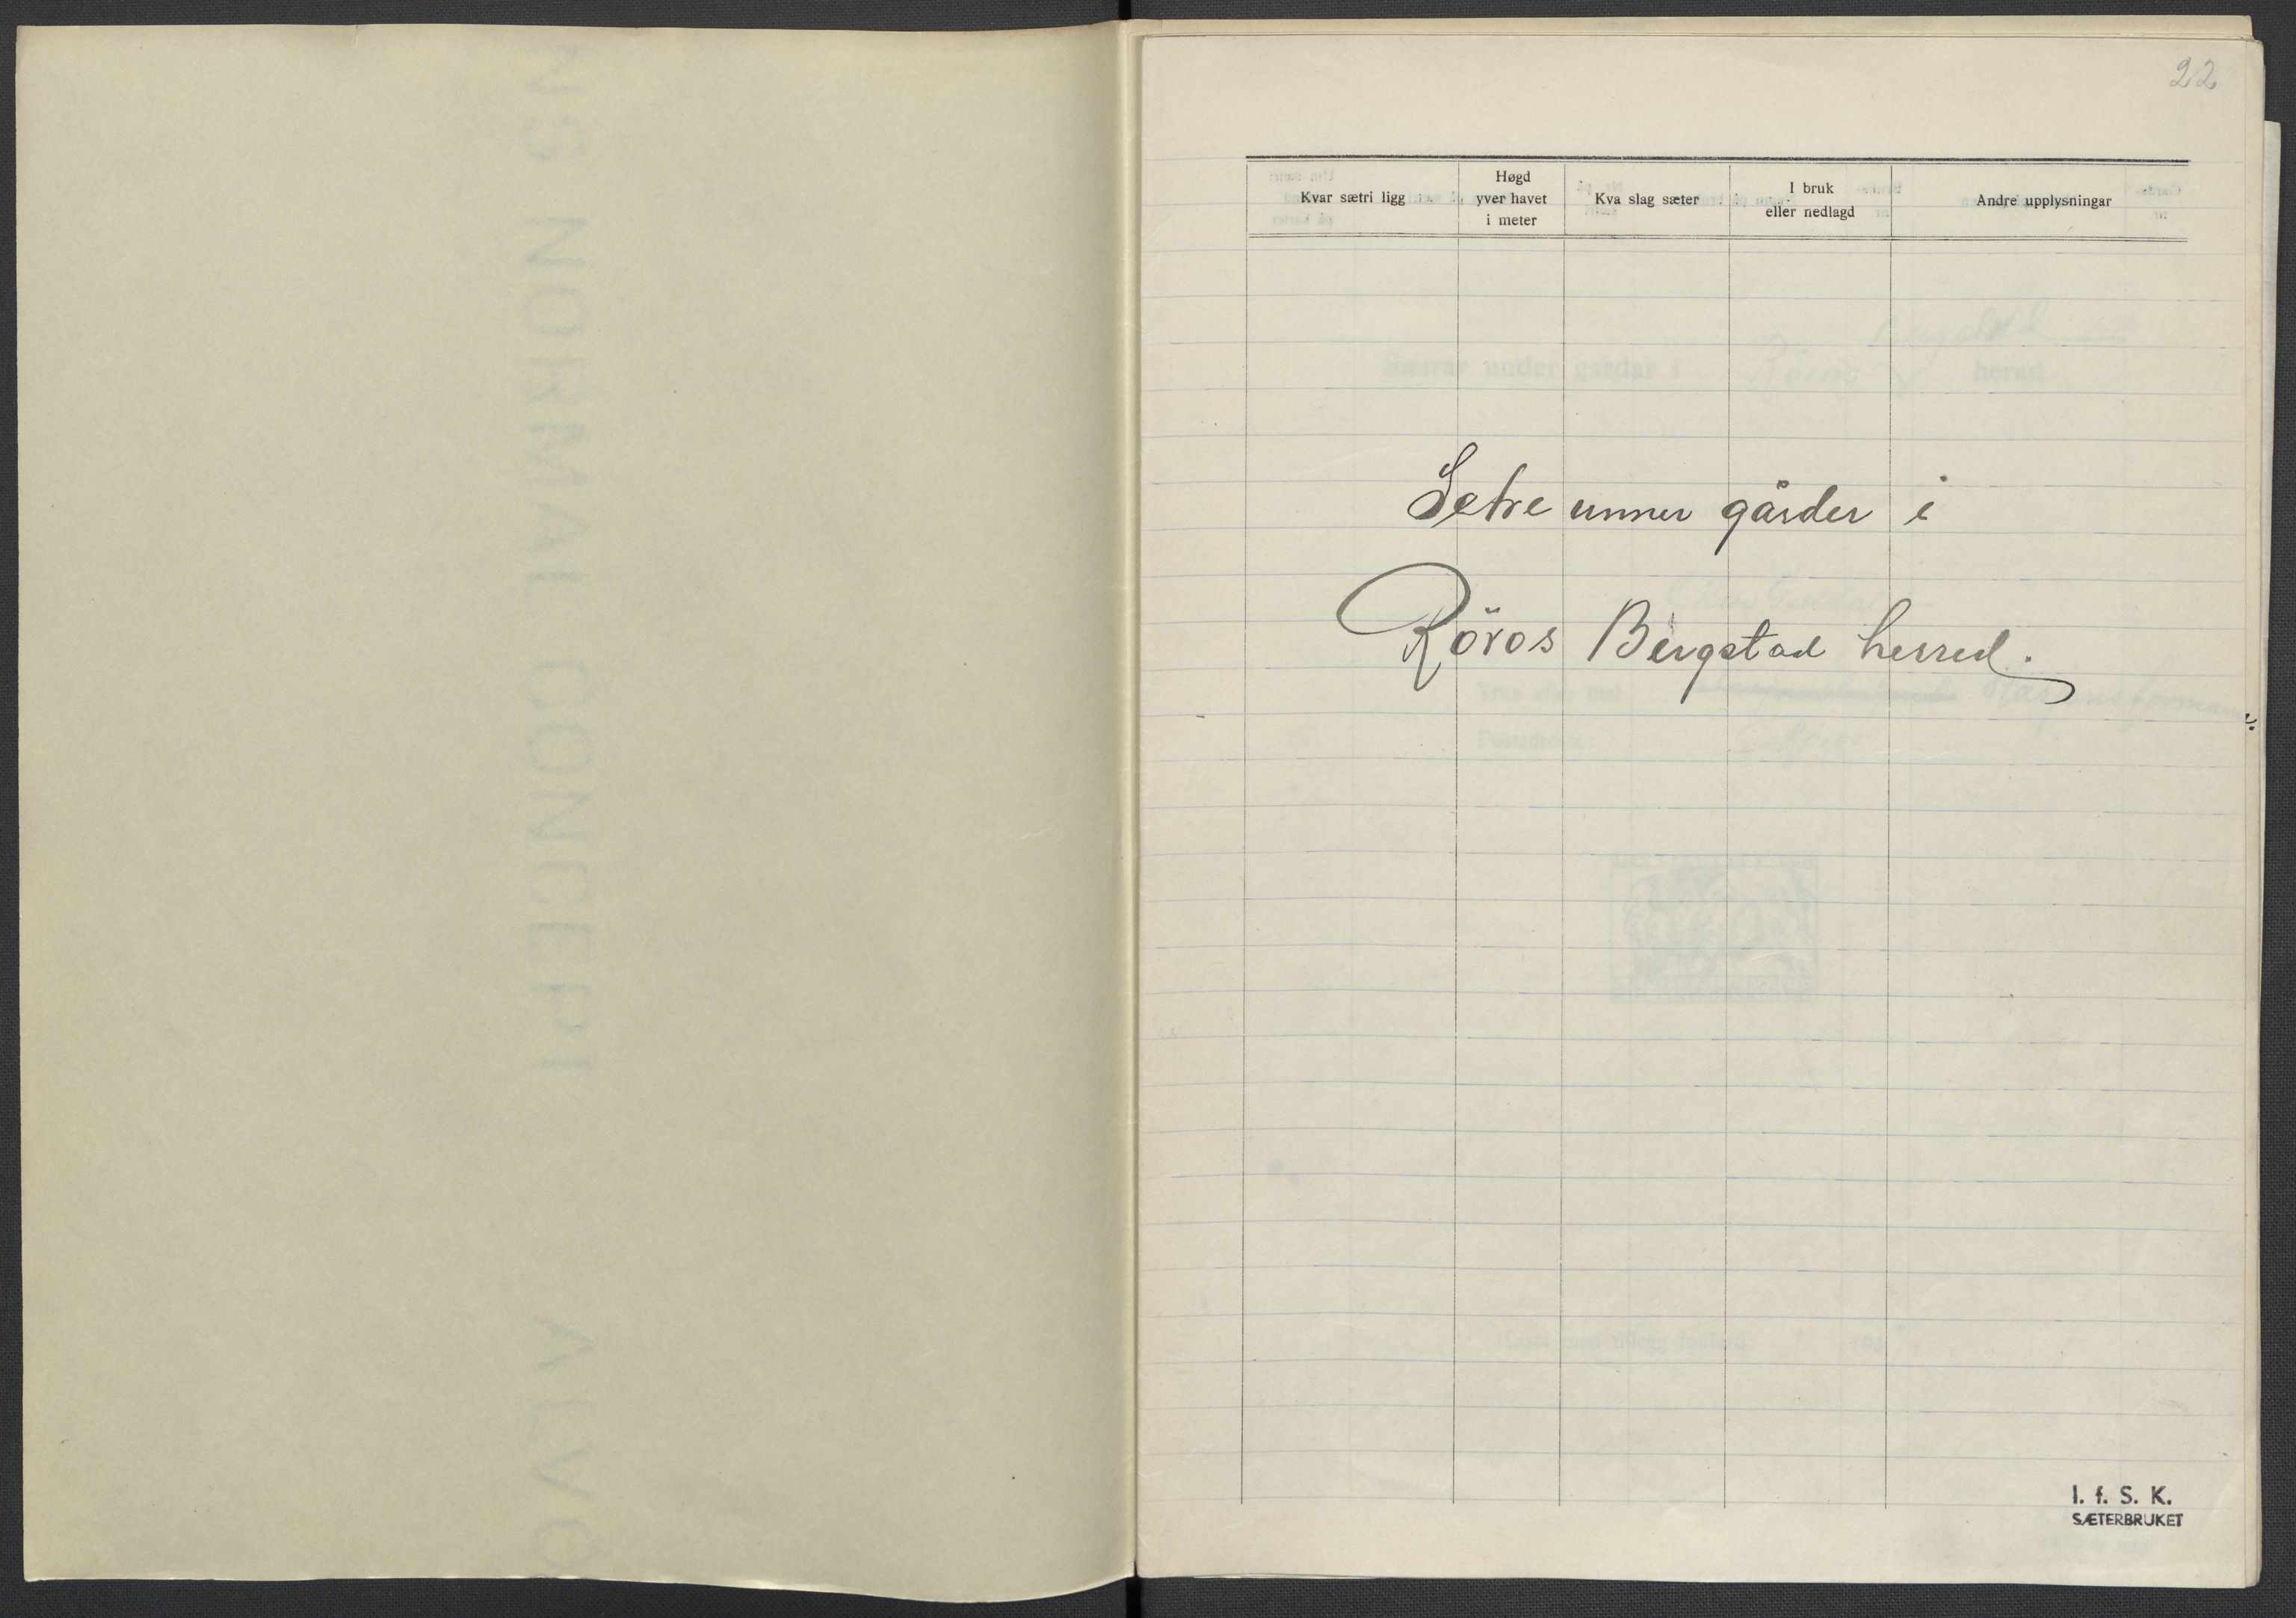 22
Kvar sætri ligg
Høgd
yver havet
i meter
Kva slag sæter
I bruk
eller nedlagd
Andre upplysningar
Setre unner gårder i
Röros Bergstad herred.
I. f. S. K.
SÆTERBRUKET
NORMAL CONCEPT